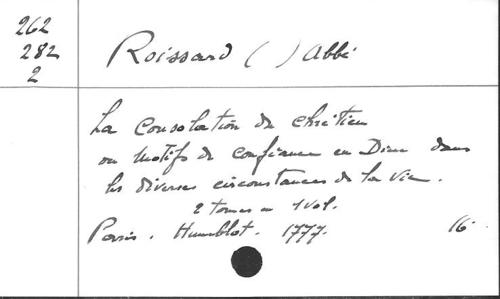 262
282
2
Roissard ( ) Abbé
La Consolation du chrétien
ou Motifs de confiance en Dieu dans
les diverses circonstances de la vie.
2 tomes en 1 Vol.
Paris. Humblot. 1777. 16°